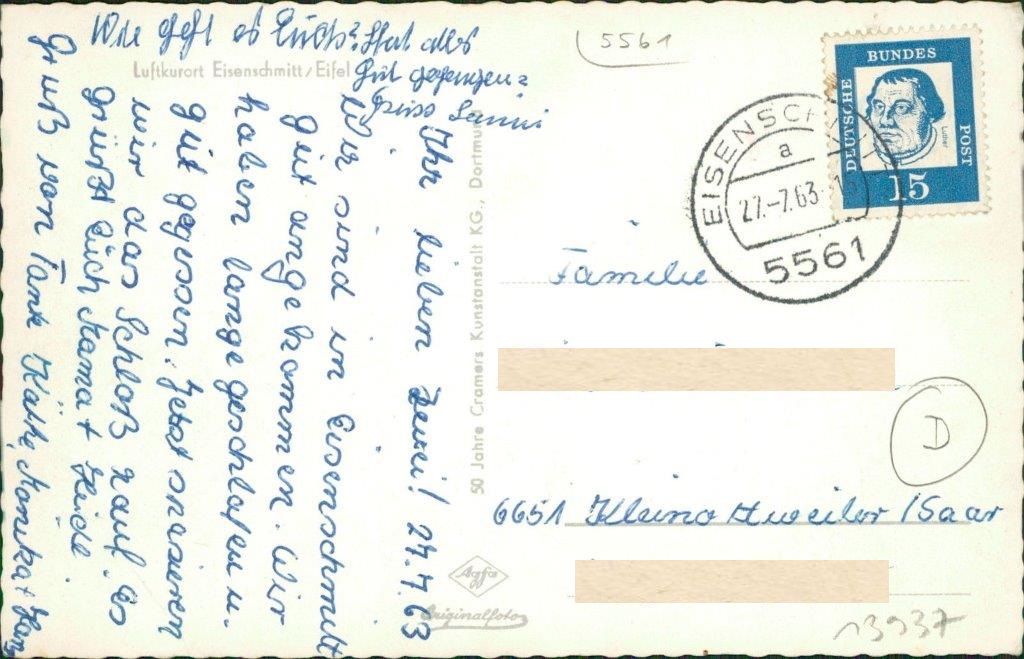 Wie geht es Euch? Hat alles
gut gegangen?
Gruss
Luftkurort Eisenschmitt/Eifel
Ihr lieben Zwei! 27.7.63
Wir sind in Eisenschmitt
gut angekommen. Wir
haben lange geschlafen u.
gut gegessen. Jetzt spazieren
wir das Schloß rauf. Es
grüßt Euch Mama + Heidi
Gruß von Tante Käthe, Monika +
50 Jahre Cramers Kunstanstalt KG., Dortmund
Agfa
Originalfoto
5561
DEUTSCHE
BUNDES
POST
Luther
15
EISENSCHMITT
a
27.-7.63
5561
Familie
6651 Kleinottweiler/Saar
D
13937